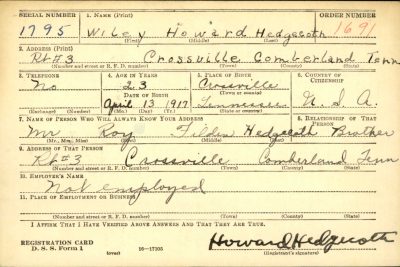 SERIAL NUMBER 1. NAME (Print) ORDER NUMBER
1795 Wiley Howard Hedgecoth 1691
(First) (Middle) (Last)
2. ADDRESS (Print)
Rt #3 Crossville Comberland Tenn
(Number and street or R. F. D. number) (Town) (County) (State)
3. TELEPHONE 4. AGE IN YEARS 5. PLACE OF BIRTH 6. COUNTRY OF CITIZENSHIP
No 23 Crossville
DATE OF BIRTH (Town or county)
April 13 1917 Tennessee U. S. A.
(Exchange) (Number) (Mo.) (Day) (Yr.) (State or country)
7. NAME OF PERSON WHO WILL ALWAYS KNOW YOUR ADDRESS 8. RELATIONSHIP OF THAT PERSON
Mr Roy Felden Hedgecoth Brother
(Mr., Mrs., Miss) (First) (Middle) (Last)
9. ADDRESS OF THAT PERSON
Rt #3 Crossville Comberland Tenn
(Number and street or R. F. D. number) (Town) (County) (State)
10. EMPLOYER'S NAME
Not employed
11. PLACE OF EMPLOYMENT OR BUSINESS
(Number and street or R. F. D. number) (Town) (County) (State)
I AFFIRM THAT I HAVE VERIFIED ABOVE ANSWERS AND THAT THEY ARE TRUE.
REGISTRATION CARD Howard Hedgecoth
D. S. S. Form 1 (over) 16—17105 (Registrant's signature)